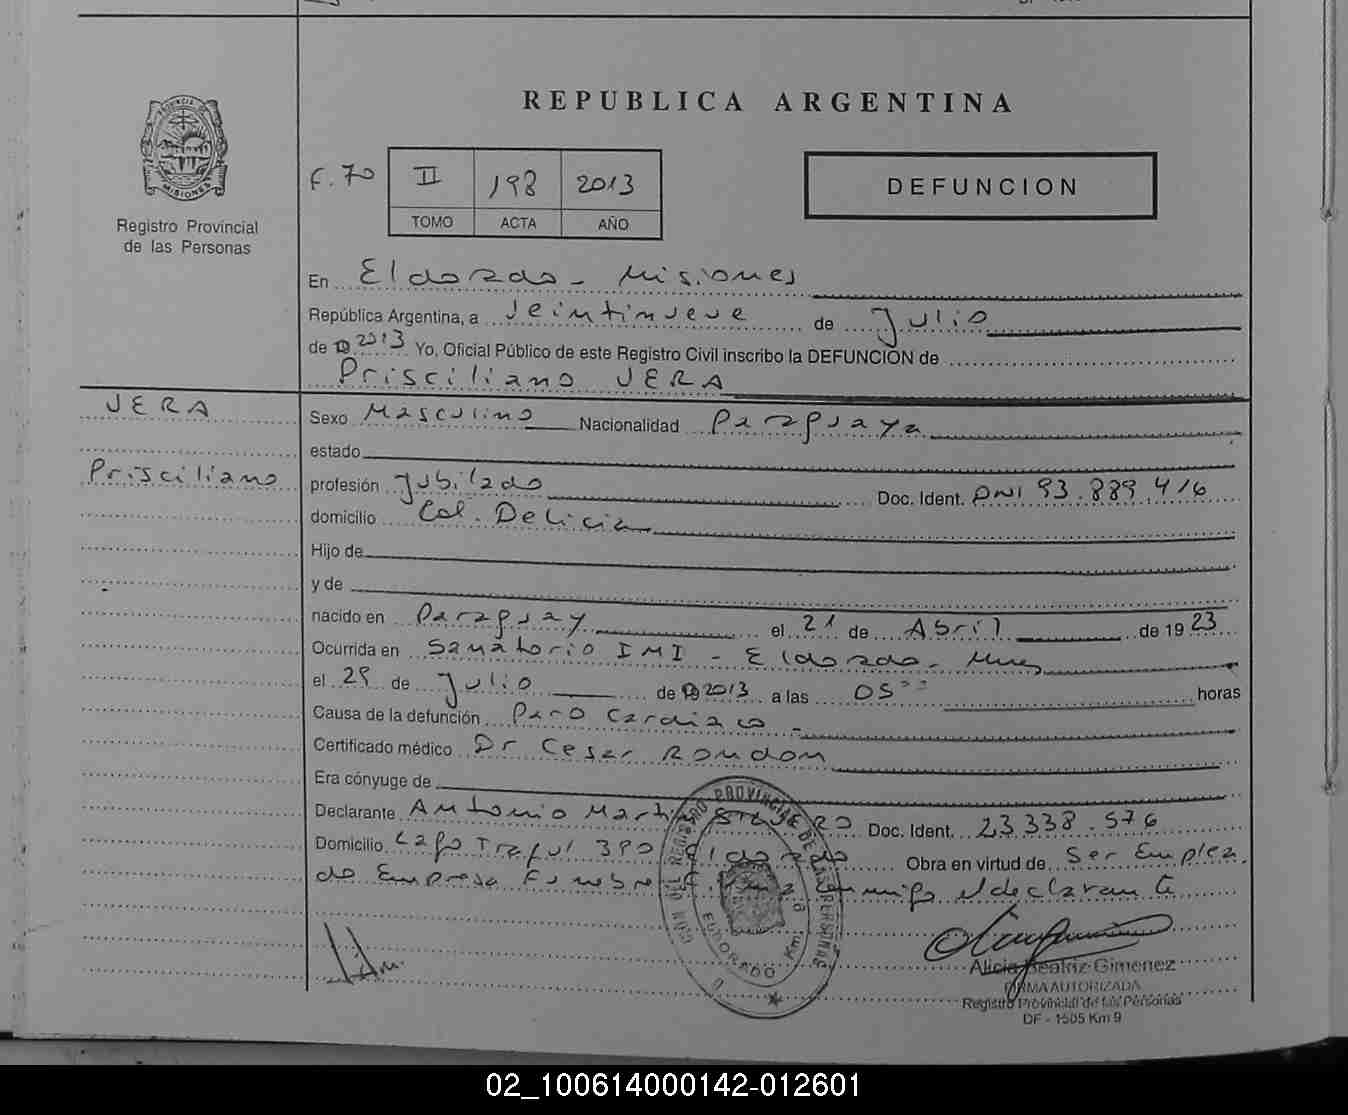 REPUBLICA ARGENTINA
PROVINCIA DE MISIONES
Registro Provincial
de las Personas
F. 70 II 198 2013
TOMO ACTA AÑO
DEFUNCION
En Eldorado - Misiones
República Argentina, a Veintinueve de Julio
de 2013 Yo, Oficial Público de este Registro Civil inscribo la DEFUNCION de
Prisciliano VERA
VERA
Prisciliano
Sexo Masculino Nacionalidad Paraguaya
estado
profesión Jubilado Doc. Ident. DNI 93.889.416
domicilio Col. Delicia
Hijo de
y de
nacido en Paraguay el 21 de Abril de 1923
Ocurrida en Sanatorio IMI - Eldorado - Mnes
el 29 de Julio de 2013 a las 05 horas
Causa de la defunción Paro Cardiaco
Certificado médico Dr Cesar Rondon
Era cónyuge de
Declarante Antonio Doc. Ident. 23.338.576
Domicilio Lago Traful 390 Eldorado Obra en virtud de Ser Emplea
do Empresa Funebre el declarante
Alicia Beatriz Gimenez
FIRMA AUTORIZADA
Registro Provincial de las Personas
DF - 1505 Km 9
02_100614000142-012601